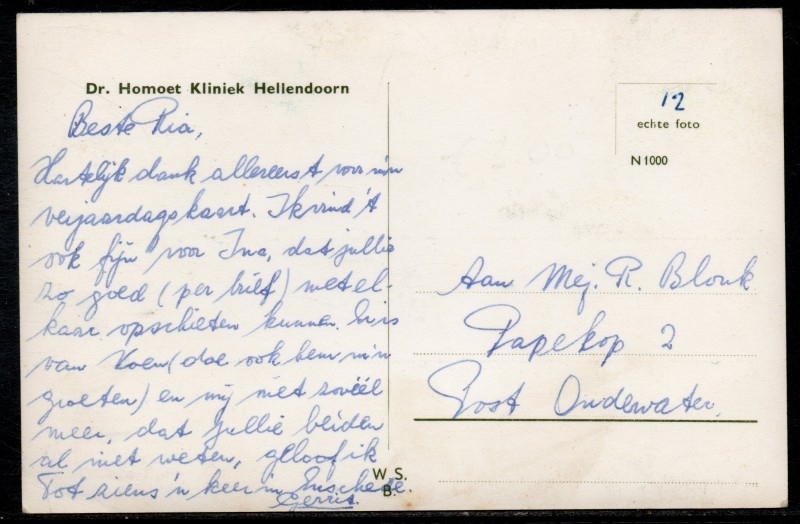 Dr. Homoet Kliniek Hellendoorn
Beste Ria,
Hartelijk dank allereerst voor m'n
verjaardagskaart. Ik vind 't
ook fijn voor Ina, dat jullie
zo goed (per brief) met el-
kaar opschieten kunnen. Er is
van Koen (doe ook hem m'n
groeten) en mij niet zovéél
meer, dat jullie beiden
al niet weten, geloof ik
Tot ziens 'n keer in Enschede.
Gerrit
12
echte foto
N 1000
Aan Mej. R. Blonk
Papekop 2
Post Oudewater.
W S.
B.